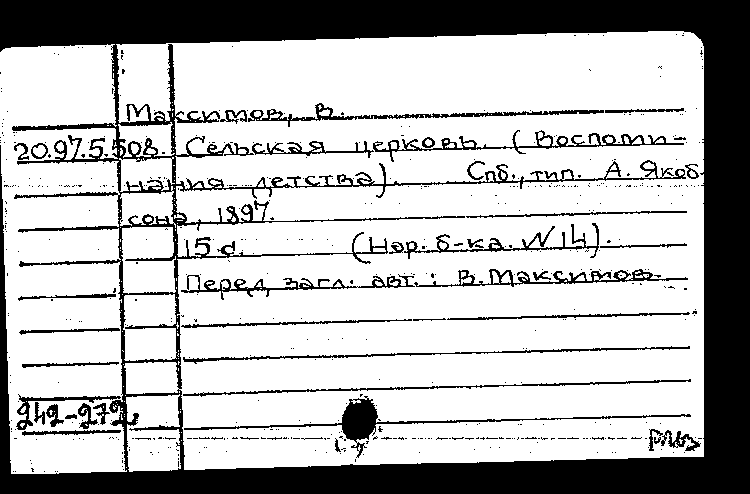 Максимов, В.
20.97.5.508. Сельская церковь. (Воспоми-
нания детства). Спб., тип. А. Якоб-
сона, 1897.
15 с. (Нар. б-ка. N 14).
Перед загл. авт.: В. Максимов.
242-272.